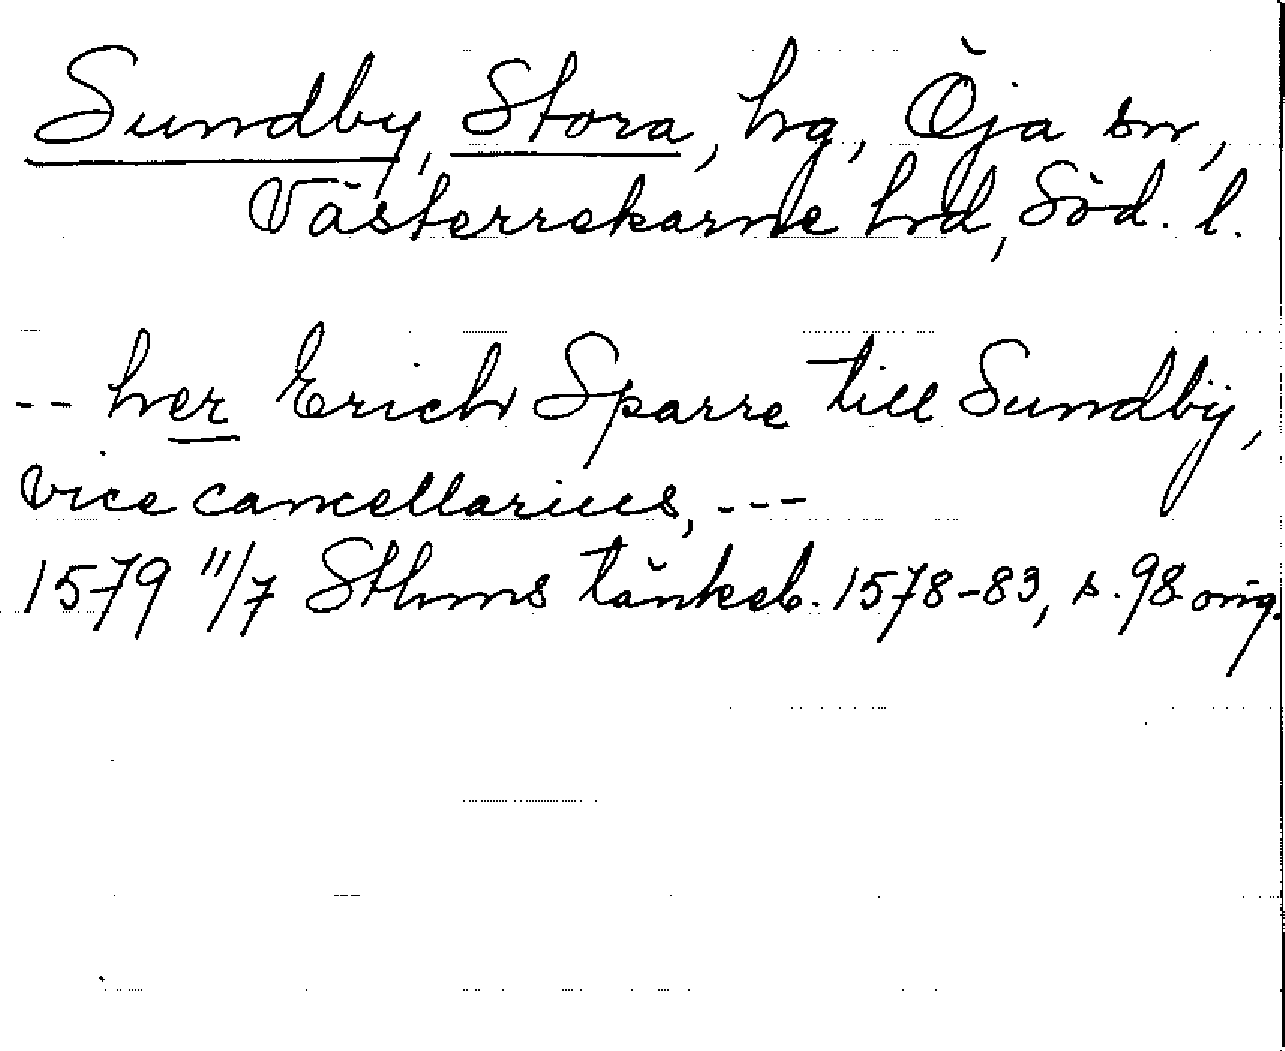 Sundby, Stora, hg, Öja sn,
Västerrekarne hrd, Söd. l.
-- her Erich Sparre till Sundbÿ,
vice cancellarius, ---
1579 11/7 Sthms tänkeb. 1578-83, s. 98 orig.